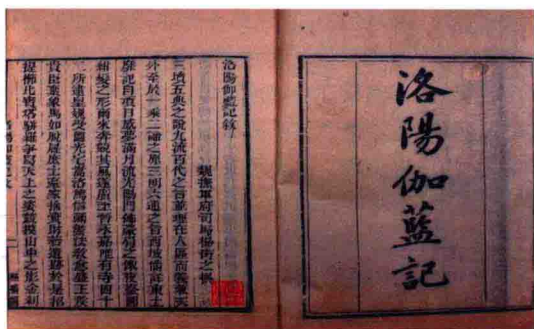 洛陽伽藍記
洛陽伽藍記敘
魏撫軍府司馬楊衒之撰
三墳五典之說九流百代之言並理在人區而義兼天
外至於一乘二諦之原三明六通之旨西域備詳東土
靡記自項日感夢滿月流光陽門飾豪眉之像夜臺圖
紺髮之形爾來奔競其風遂廣至晉永嘉唯有寺四十
二所逮皇魏受圖光宅嵩洛篤信彌繁法教愈盛王侯
貴臣棄象馬如脫屣庶士豪家捨資財若遺跡於是招
提櫛比寶塔駢羅爭寫天上之姿競摸山中之影金剎